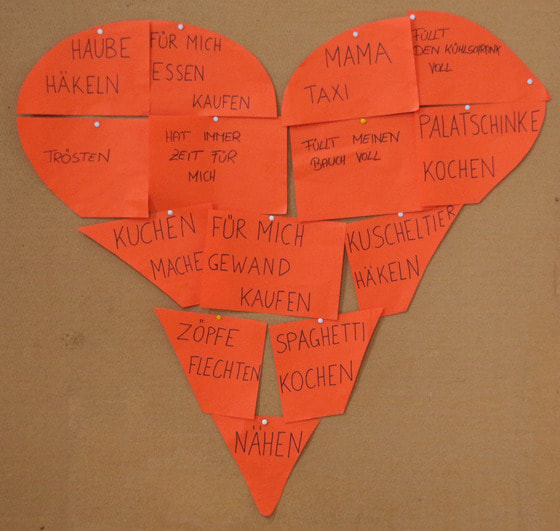 HAUBE
HÄKELN
FÜR MICH
ESSEN
KAUFEN
MAMA
TAXI
FÜLLT
DEN KÜHLSCHRANK
VOLL
TRÖSTEN
HAT IMMER
ZEIT FÜR
MICH
FÜLLT MEINEN
BAUCH VOLL
PALATSCHINKE
KOCHEN
KUCHEN
MACHE
FÜR MICH
GEWAND
KAUFEN
KUSCHELTIER
HÄKELN
ZÖPFE
FLECHTEN
SPAGHETTI
KOCHEN
NÄHEN